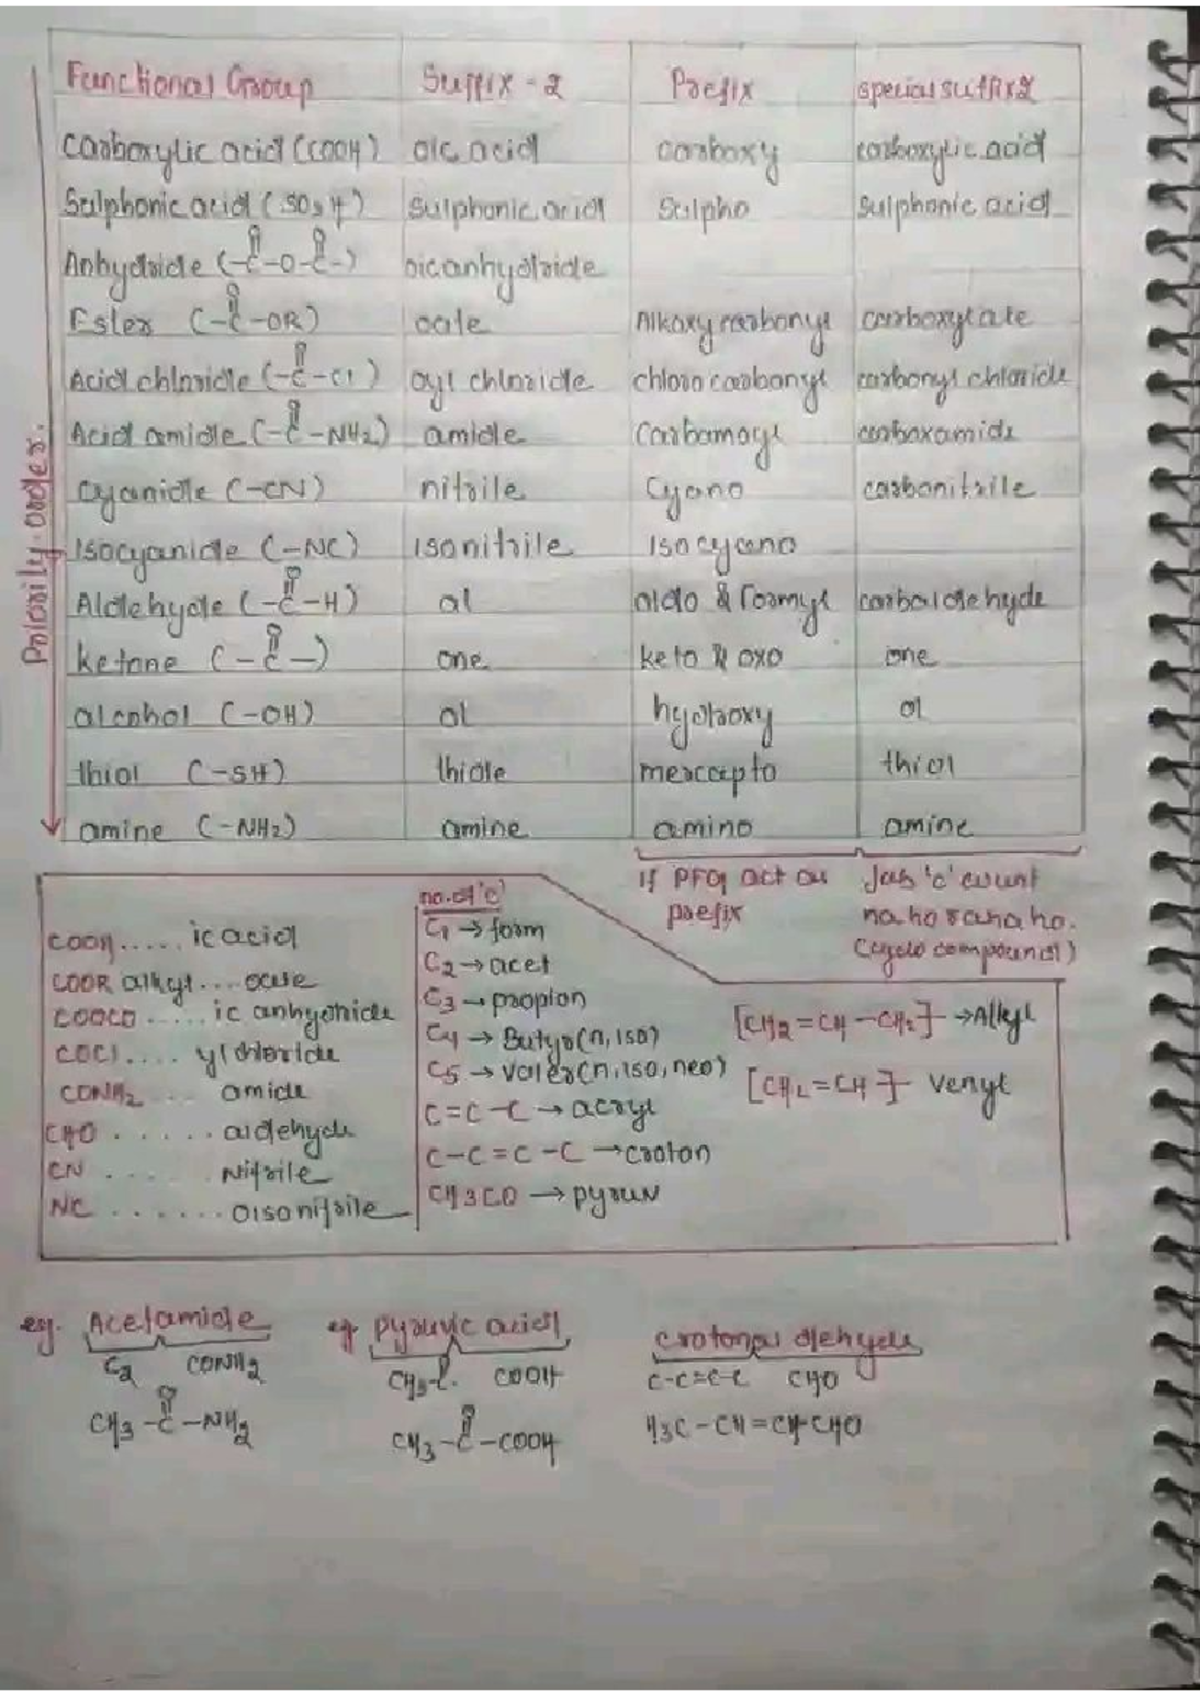 Functional Group Suffix-2 Prefix special suffix 2
Carboxylic acid (COOH) oic acid carboxy carboxylic acid
Sulphonic acid (SO3H) sulphonic acid Sulpho sulphonic acid
O O
Anhydride (-C-O-C-) oicanhydride
O
Ester (-C-OR) oate Alkoxy carbonyl carboxylate
O
Acid chloride (-C-Cl) oyl chloride chloro carbonyl carbonyl chloride
O
Acid amide (-C-NH2) amide Carbamoyl carboxamide
Cyanide (-CN) nitrile Cyano carbonitrile
Isocyanide (-NC) isonitrile isocyano
O
Aldehyde (-C-H) al aldo & formyl carbaldehyde
O
ketone (-C-) one keto & oxo one
alcohol (-OH) ol hydroxy ol
thiol (-SH) thiole mercapto thiol
amine (-NH2) amine amino amine
order.
If PFG act as prefix
Jab 'c' count
na ho raha ho.
(cyclo compound)
COOH..... ic acid
COOR alkyl... oate
COOCO ..... ic anhydride
COCl.... yl chloride
CONH2 ... amide
CHO ...... aldehyde
CN ...... Nitrile
NC ....... oisonitrile
no. of 'c'
C1 → form
C2 → acet
C3 → propion
C4 → Butyr (n, iso)
C5 → valer (n, iso, neo)
C=C-C → acryl
C-C=C-C → croton
CH3CO → pyruv
[CH2=CH-CH2] → Allyl
[CH2=CH] venyl
eg. Acetamide
C2 CONH2
O
CH3-C-NH2
eg. pyruvic acid
COOH
O
CH3-C-COOH
crotonal dehyde
C-C=C-C CHO
H3C-CH=CH-CHO